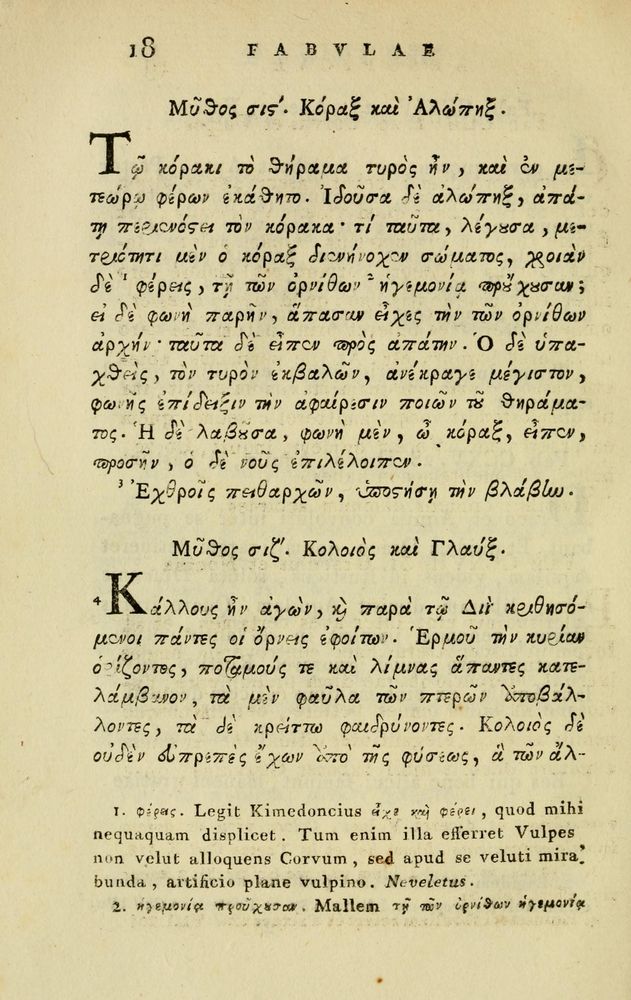 18 FABVLAE
Μῦθος σις'. Κόραξ καὶ Ἀλώπηξ.
Τῷ κόρακι τὸ θήραμα τυρὸς ἦν, καὶ ἐν με-
τεώρῳ φέρων ἐκάθητο. Ἰδοῦσα δὲ ἀλώπηξ, ἀπά-
τῃ περιενόςει τὸν κόρακα· τί ταῦτα, λέγουσα, με-
τριότητι μὲν ὁ κόραξ διενήνοχεν σώματος, χροιὰν
δὲ ¹ φέρεις, τῇ τῶν ὀρνίθων ² ἡγεμονίᾳ προὔχουσαν;
εἰ δὲ φωνὴ παρῆν, ἅπασαν εἶχες τὴν τῶν ὀρνίθων
ἀρχήν· ταῦτα δὲ εἶπεν πρὸς ἀπάτην. Ὁ δὲ ὑπα-
χθεὶς, τὸν τυρὸν ἐκβαλὼν, ἀνέκραγε μέγιστον,
φωνῆς ἐπίδειξιν τὴν ἀφαίρεσιν ποιῶν τοῦ θηράμα-
τος. Ἡ δὲ λαβοῦσα, φωνὴ μὲν, ὦ κόραξ, εἶπεν,
προσῆν, ὁ δὲ νοῦς ἐπιλέλοιπεν.
³ Ἐχθροῖς πειθαρχῶν, ὑποστήσῃ τὴν βλάβην.
Μῦθος σιζ'. Κολοιὸς καὶ Γλαύξ.
⁴ Κάλλους ἦν ἀγὼν, καὶ παρὰ τῷ Διῒ κριθησό-
μενοι πάντες οἱ ὄρνεις ἐφοίτων. Ἑρμοῦ τὴν κυρίαν
ὁρίζοντες, ποταμούς τε καὶ λίμνας ἅπαντες κατε-
λάμβανον, τὰ μὲν φαῦλα τῶν πτερῶν ἀποβάλ-
λοντες, τὰ δὲ κρείττω φαιδρύνοντες. Κολοιὸς δὲ
οὐδὲν εὐπρεπὲς ἔχων ὑπὸ τῆς φύσεως, ἃ τῶν ἄλ-
1. φέρεις. Legit Kimedoncius εἶχε καὶ φέρει, quod mihi
nequaquam displicet. Tum enim illa efferret Vulpes
non velut alloquens Corvum, sed apud se veluti mira
bunda, artificio plane vulpino. Neveletus.
2. ἡγεμονίᾳ προὔχουσαν. Mallem τῇ τῶν ὀρνίθων ἡγεμονίᾳ